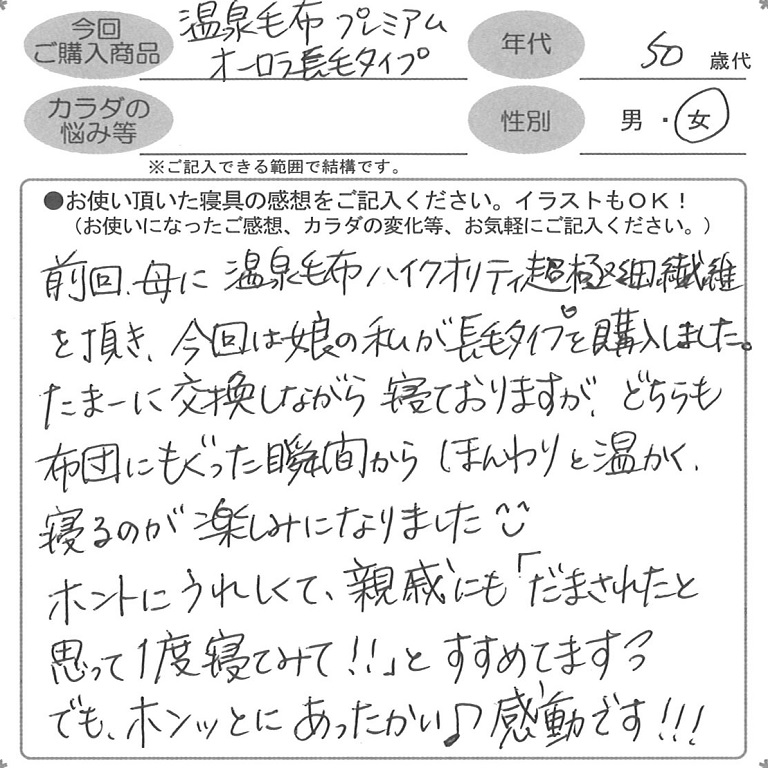 今回
ご購入商品
温泉毛布 プレミアム
オーロラ長毛タイプ
年代
50 歳代
カラダの
悩み等
性別
男・女
※ご記入できる範囲で結構です。
●お使い頂いた寝具の感想をご記入ください。イラストもOK!
(お使いになったご感想、カラダの変化等、お気軽にご記入ください。)
前回、母に 温泉毛布ハイクオリティ超極細繊維
を頂き、今回は娘の私が長毛タイプを購入しました。
たまーに交換しながら 寝ておりますが、どちらも
布団にもぐった瞬間から ほんわりと温かく、
寝るのが 楽しみになりました
ホントにうれしくて、親戚にも「だまされたと
思って1度寝てみて!!」と すすめてます
でも、ホンッとに あったかい♪ 感動です!!!